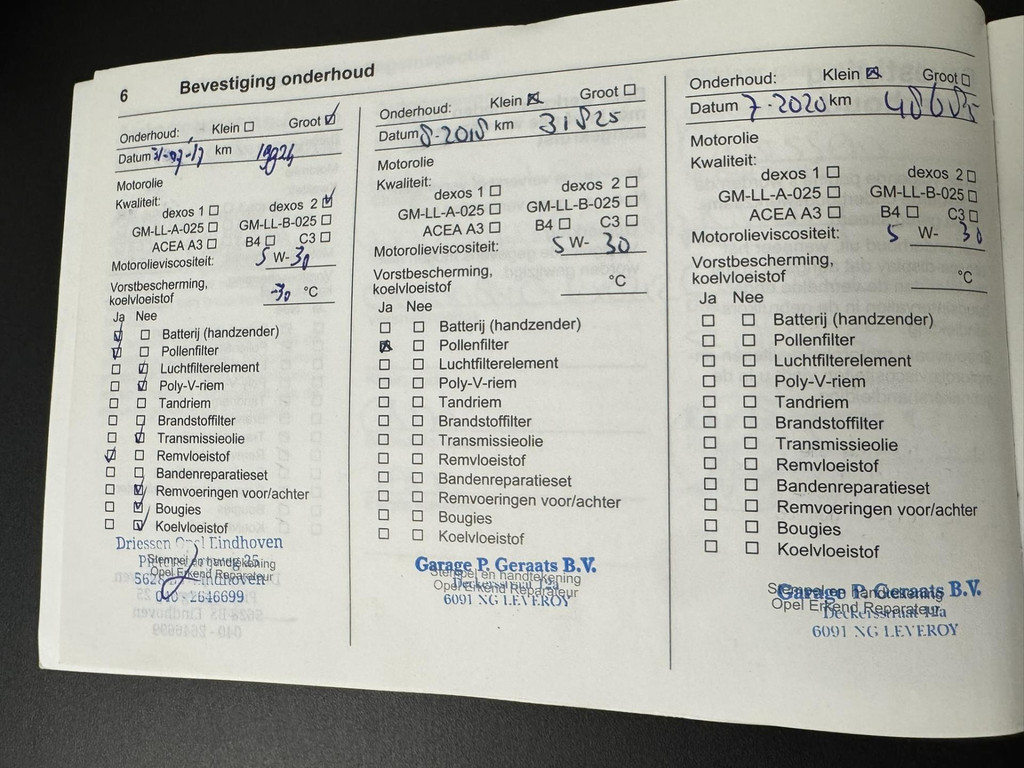 6 Bevestiging onderhoud
Onderhoud: Klein Groot
Datum 31-07-17 km
Motorolie
Kwaliteit:
dexos 1 dexos 2
GM-LL-A-025 GM-LL-B-025
ACEA A3 B4 C3
Motorolieviscositeit: 5 W-30
Vorstbescherming,
koelvloeistof -30 °C
Ja Nee
Batterij (handzender)
Pollenfilter
Luchtfilterelement
Poly-V-riem
Tandriem
Brandstoffilter
Transmissieolie
Remvloeistof
Bandenreparatieset
Remvoeringen voor/achter
Bougies
Koelvloeistof
Driessen Opel Eindhoven
Stempel en handtekening
Opel Erkend Reparateur
Eindhoven
040 - 2646699
Onderhoud: Klein Groot
Datum 8-2018 km 31825
Motorolie
Kwaliteit:
dexos 1 dexos 2
GM-LL-A-025 GM-LL-B-025
ACEA A3 B4 C3
Motorolieviscositeit: 5 W- 30
Vorstbescherming,
koelvloeistof °C
Ja Nee
Batterij (handzender)
Pollenfilter
Luchtfilterelement
Poly-V-riem
Tandriem
Brandstoffilter
Transmissieolie
Remvloeistof
Bandenreparatieset
Remvoeringen voor/achter
Bougies
Koelvloeistof
Garage P. Geraats B.V.
Stempel en handtekening
Deckersstraat 12a
Opel Erkend Reparateur
6091 NG LEVEROY
Onderhoud: Klein Groot
Datum 7-2020 km 48685
Motorolie
Kwaliteit:
dexos 1 dexos 2
GM-LL-A-025 GM-LL-B-025
ACEA A3 B4 C3
Motorolieviscositeit: 5 W- 30
Vorstbescherming,
koelvloeistof °C
Ja Nee
Batterij (handzender)
Pollenfilter
Luchtfilterelement
Poly-V-riem
Tandriem
Brandstoffilter
Transmissieolie
Remvloeistof
Bandenreparatieset
Remvoeringen voor/achter
Bougies
Koelvloeistof
Stempel en handtekening
Garage P. Geraats B.V.
Opel Erkend Reparateur
Deckersstraat 12a
6091 NG LEVEROY